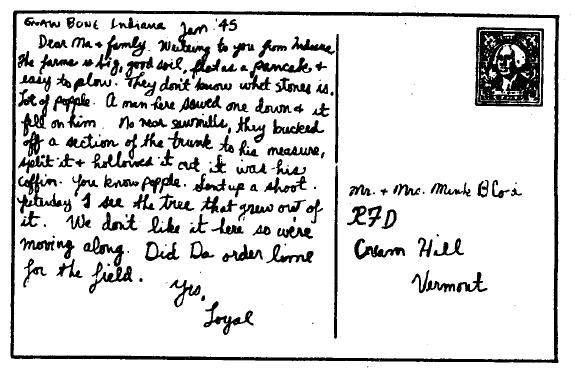 Gnaw Bone Indiana Jan '45
Dear Ma & family. Writing to you from Indiana
the farms is big, good soil, flat as a pancake &
easy to plow. They don't know what stones is.
Lot of popple. A man here sawed one down & it
fell on him. No near sawmills, they bucked
off a section of the trunk to his measure,
split it & hollowed it out it was his
coffin. You know popple. Sent up a shoot.
Yesterday I see the tree that grew out of
it. We don't like it here so we're
moving along. Did Da order lime
for the field.
Yrs,
Loyal
Mr. & Mrs. Mink
RFD
Cream Hill
Vermont